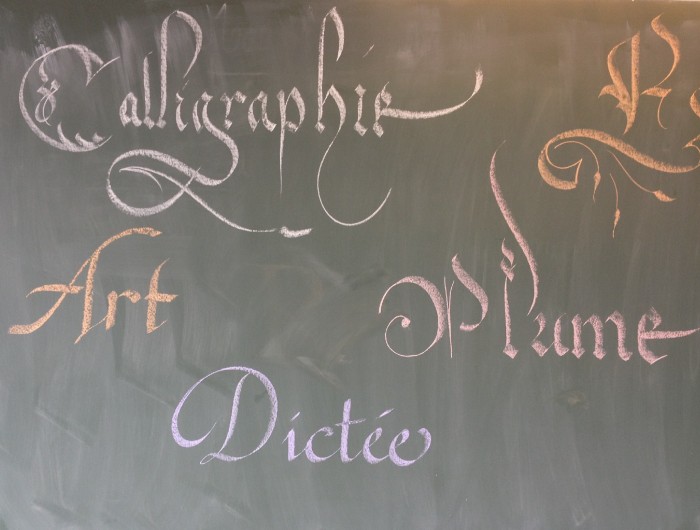 Calligraphie
Art
Plume
Dictée